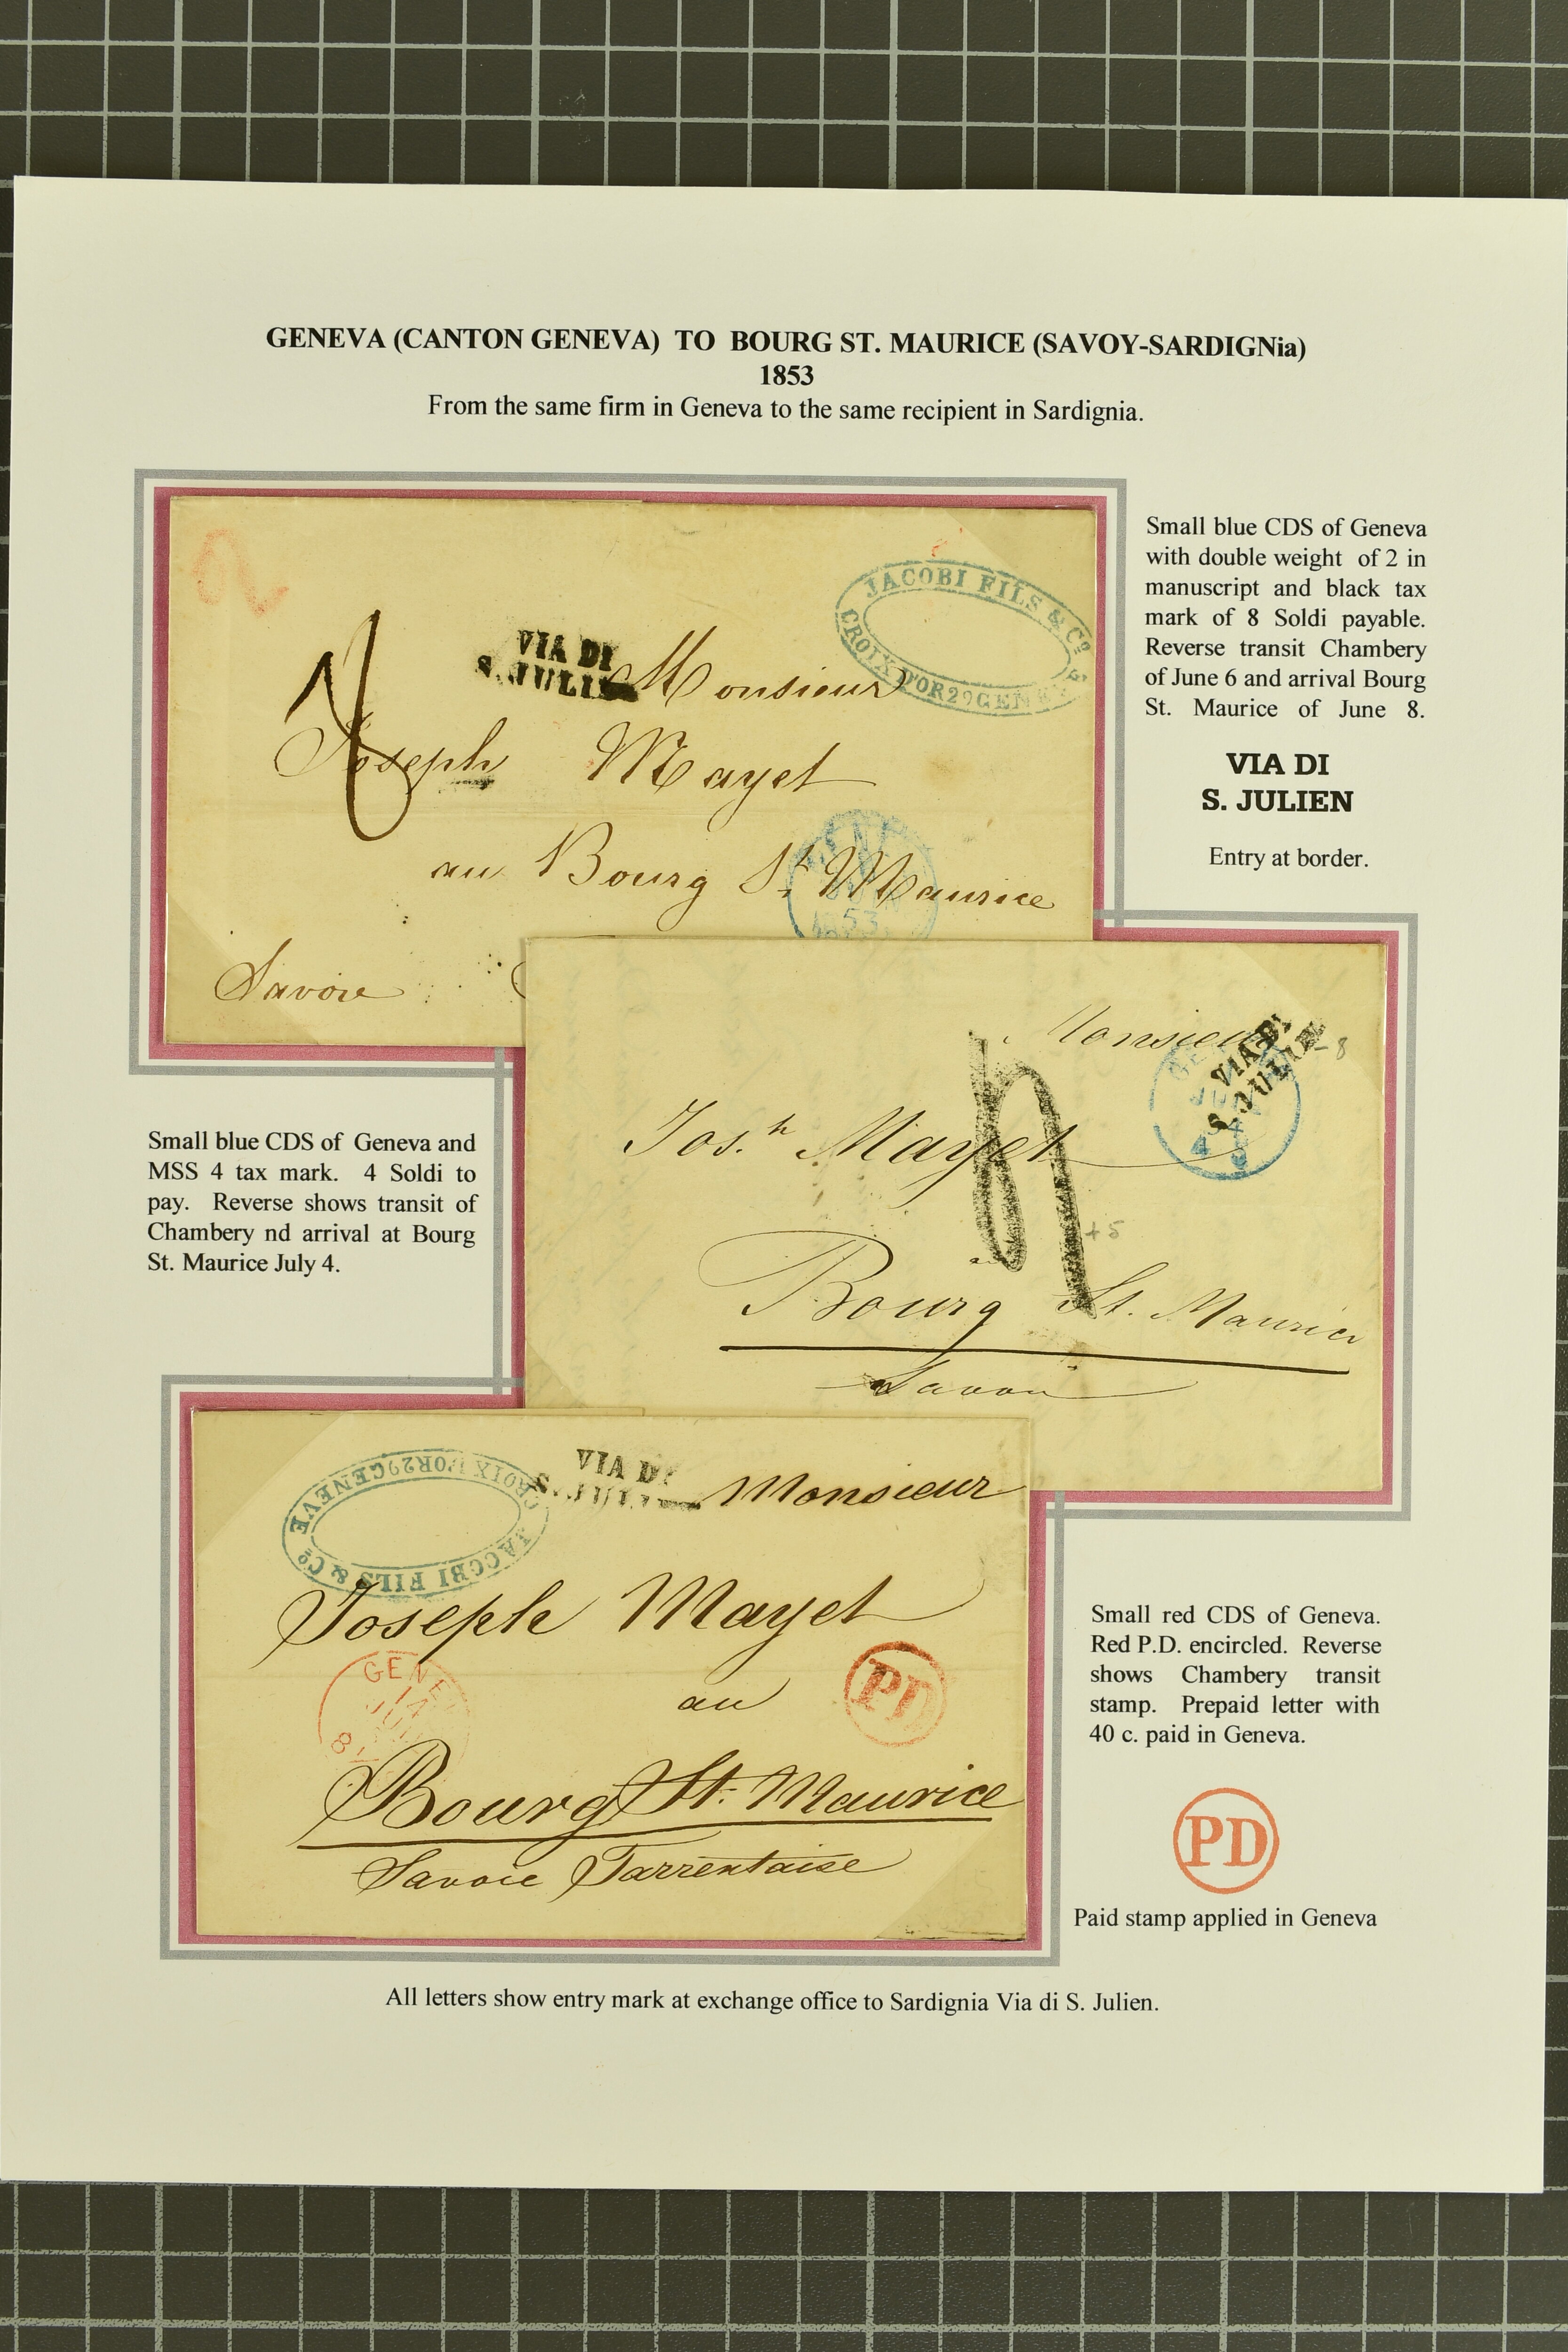 GENEVA (CANTON GENEVA) TO BOURG ST. MAURICE (SAVOY-SARDIGNia)
1853
From the same firm in Geneva to the same recipient in Sardignia.
2
JACOBI FILS & Cº
CROIX D'OR 29 GENEVE
VIA DI
S. JULIEN
Monsieur
Joseph Mayet
au Bourg St. Maurice
53
Savoie
Small blue CDS of Geneva
with double weight of 2 in
manuscript and black tax
mark of 8 Soldi payable.
Reverse transit Chambery
of June 6 and arrival Bourg
St. Maurice of June 8.
VIA DI
S. JULIEN
Entry at border.
Monsieur
VIA DI
S. JULIEN
-8
Jos.h Mayet
+5
Bourg St. Maurice
Savoie
Small blue CDS of Geneva and
MSS 4 tax mark. 4 Soldi to
pay. Reverse shows transit of
Chambery nd arrival at Bourg
St. Maurice July 4.
CROIX D'OR 29 GENEVE
JACOBI FILS & Cº
VIA DI
S. JULIEN
Monsieur
Joseph Mayet
GENEV
14
au
PD
Bourg St. Maurice
Savoie Tarrentaise
Small red CDS of Geneva.
Red P.D. encircled. Reverse
shows Chambery transit
stamp. Prepaid letter with
40 c. paid in Geneva.
PD
Paid stamp applied in Geneva
All letters show entry mark at exchange office to Sardignia Via di S. Julien.